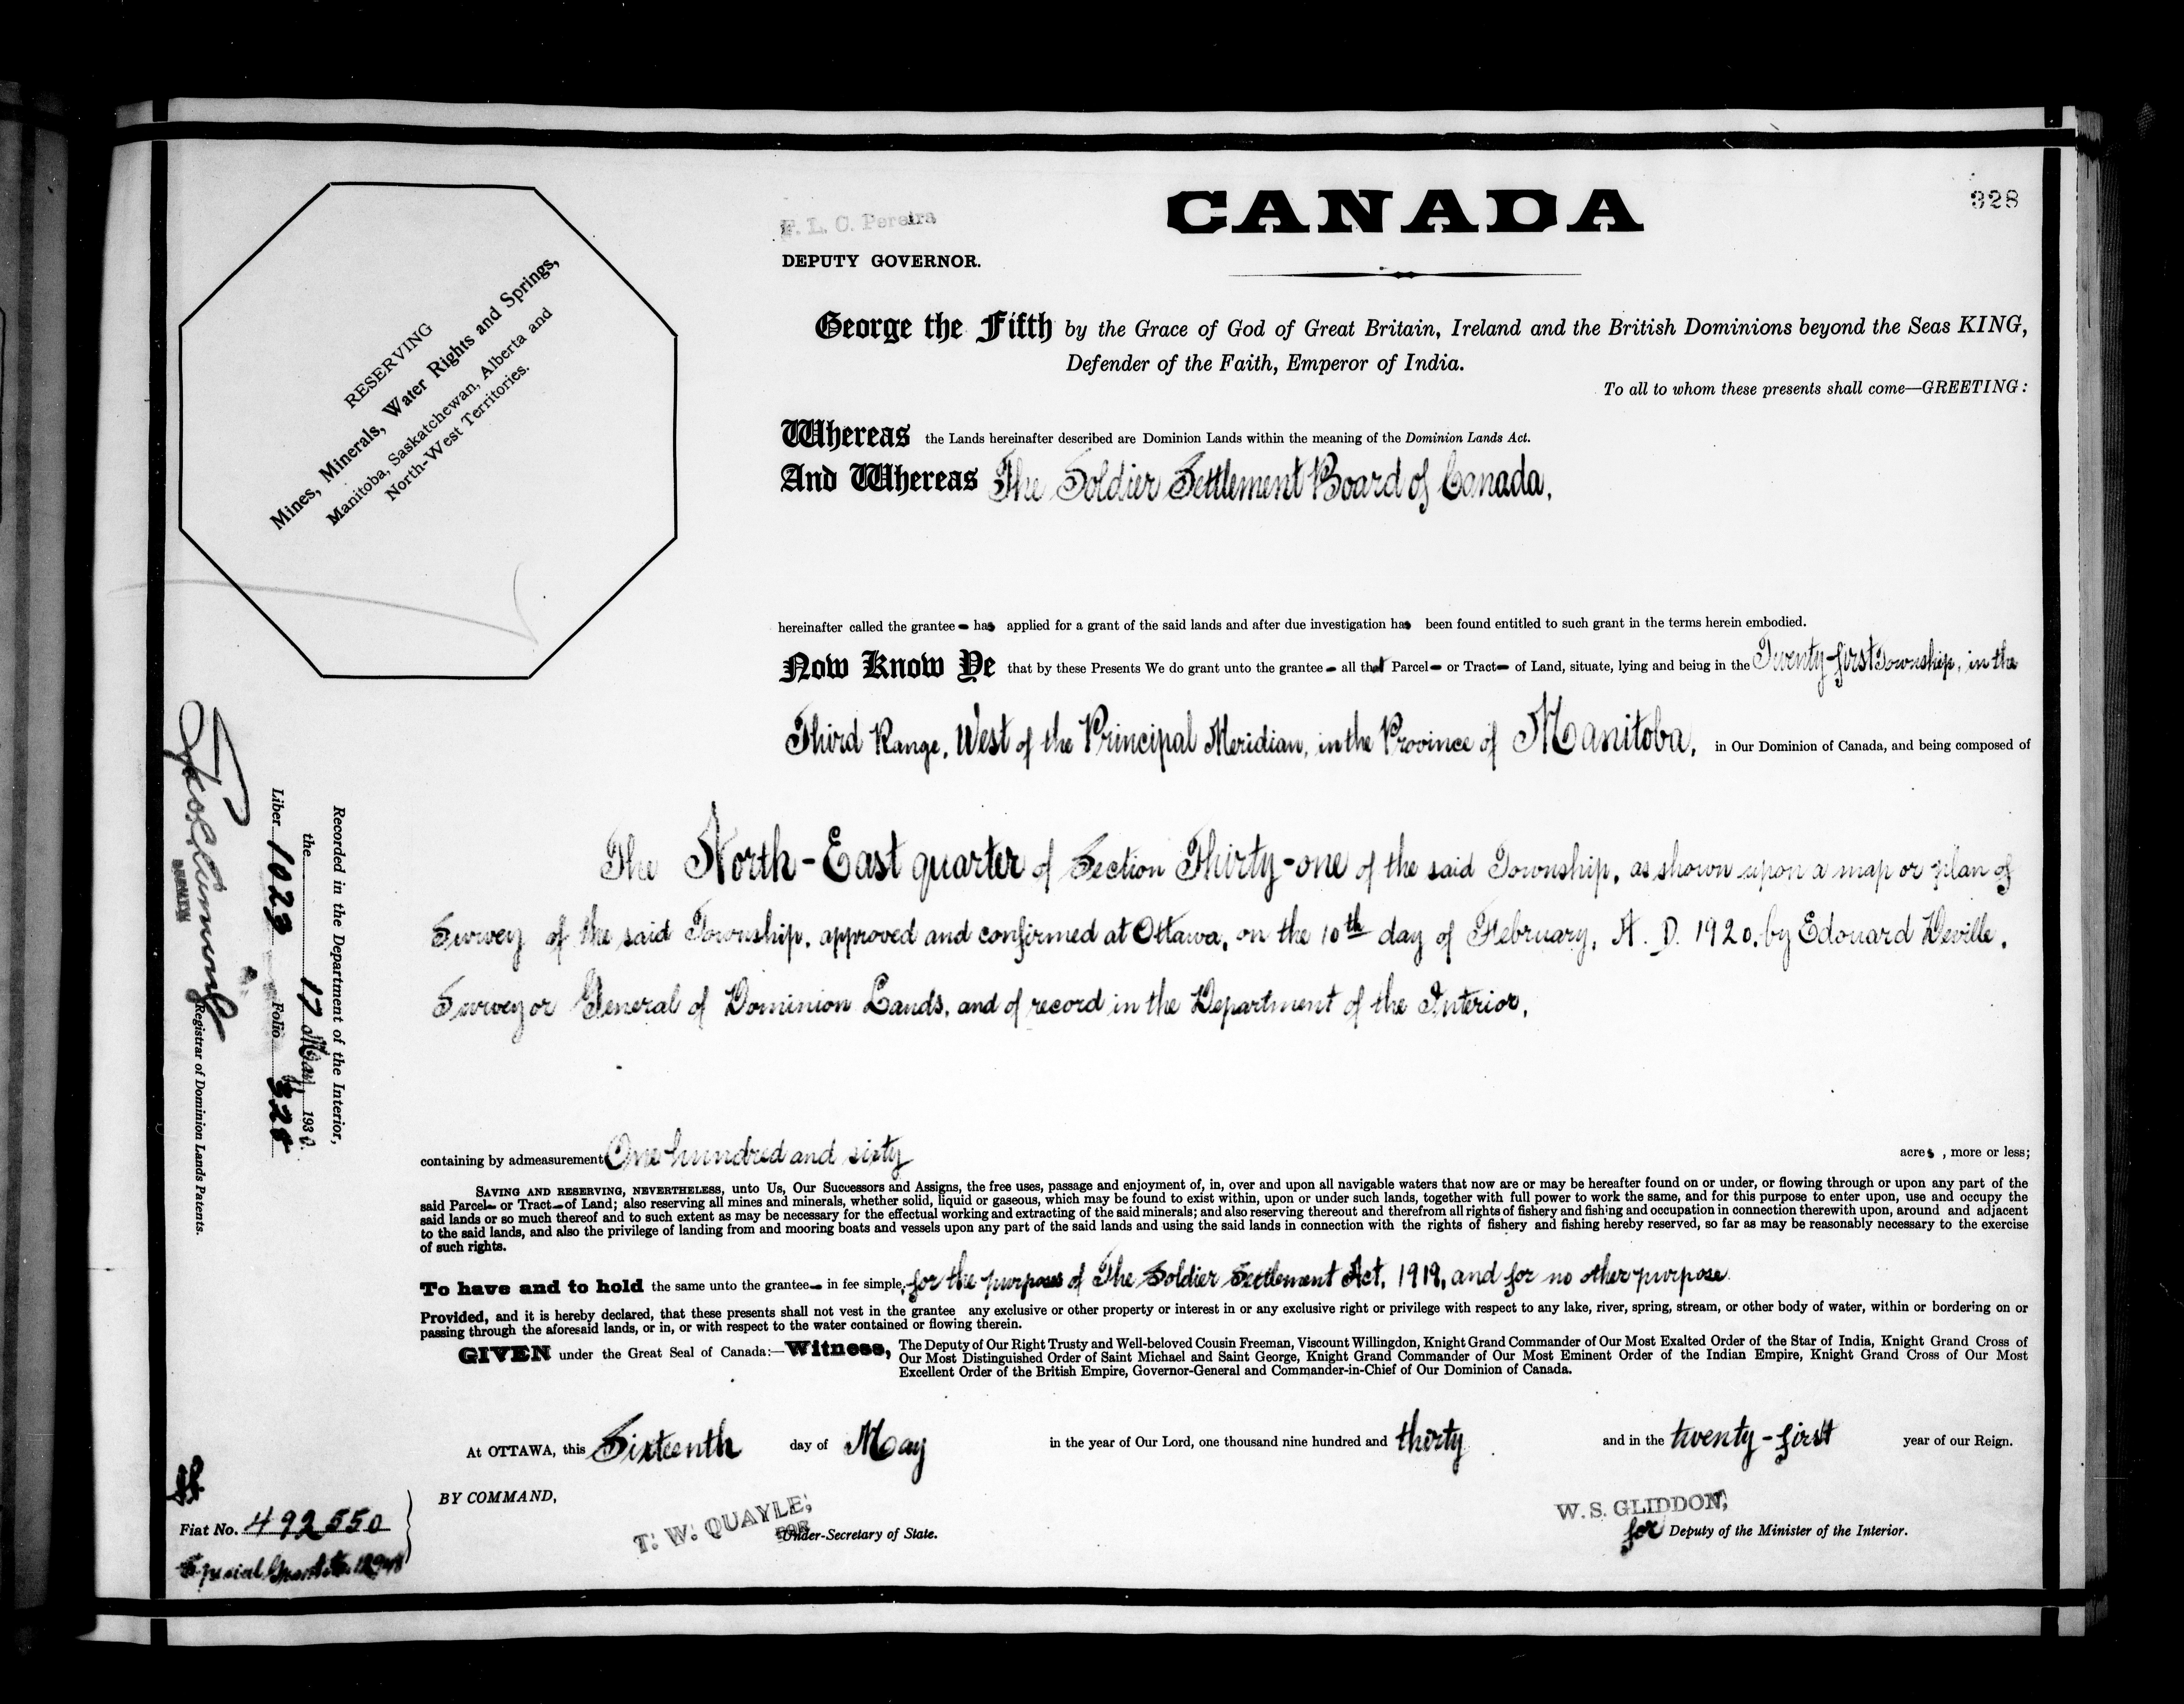 328
CANADA
F. L. C. Pereira
DEPUTY GOVERNOR.
RESERVING
Mines, Minerals, Water Rights and Springs,
Manitoba, Saskatchewan, Alberta and
North-West Territories.
George the Fifth by the Grace of God of Great Britain, Ireland and the British Dominions beyond the Seas KING,
Defender of the Faith, Emperor of India.
To all to whom these presents shall come—GREETING:
Whereas the Lands hereinafter described are Dominion Lands within the meaning of the Dominion Lands Act.
And Whereas The Soldier Settlement Board of Canada,
hereinafter called the grantee has applied for a grant of the said lands and after due investigation has been found entitled to such grant in the terms herein embodied.
Now Know Ye that by these Presents We do grant unto the grantee all that Parcel or Tract of Land, situate, lying and being in the Twenty-first Township, in the
Third Range, West of the Principal Meridian, in the Province of Manitoba, in Our Dominion of Canada, and being composed of
The North-East quarter of Section Thirty-one of the said Township, as shown upon a map or plan of
Survey of the said Township, approved and confirmed at Ottawa, on the 10th day of February, A. D. 1920, by Edouard Deville,
Surveyor General of Dominion Lands, and of record in the Department of the Interior,
Recorded in the Department of the Interior,
the 17 May 1930.
Liber 1023 Folio 328
Registrar of Dominion Lands Patents.
containing by admeasurement One hundred and sixty acres, more or less;
SAVING AND RESERVING, NEVERTHELESS, unto Us, Our Successors and Assigns, the free uses, passage and enjoyment of, in, over and upon all navigable waters that now are or may be hereafter found on or under, or flowing through or upon any part of the
said Parcel or Tract of Land; also reserving all mines and minerals, whether solid, liquid or gaseous, which may be found to exist within, upon or under such lands, together with full power to work the same, and for this purpose to enter upon, use and occupy the
said lands or so much thereof and to such extent as may be necessary for the effectual working and extracting of the said minerals; and also reserving thereout and therefrom all rights of fishery and fishing and occupation in connection therewith upon, around and adjacent
to the said lands, and also the privilege of landing from and mooring boats and vessels upon any part of the said lands and using the said lands in connection with the rights of fishery and fishing hereby reserved, so far as may be reasonably necessary to the exercise
of such rights.
To have and to hold the same unto the grantee in fee simple, for the purposes of The Soldier Settlement Act, 1919, and for no other purpose.
Provided, and it is hereby declared, that these presents shall not vest in the grantee any exclusive or other property or interest in or any exclusive right or privilege with respect to any lake, river, spring, stream, or other body of water, within or bordering on or
passing through the aforesaid lands, or in, or with respect to the water contained or flowing therein.
GIVEN under the Great Seal of Canada:—Witness, The Deputy of Our Right Trusty and Well-beloved Cousin Freeman, Viscount Willingdon, Knight Grand Commander of Our Most Exalted Order of the Star of India, Knight Grand Cross of
Our Most Distinguished Order of Saint Michael and Saint George, Knight Grand Commander of Our Most Eminent Order of the Indian Empire, Knight Grand Cross of Our Most
Excellent Order of the British Empire, Governor-General and Commander-in-Chief of Our Dominion of Canada.
At OTTAWA, this Sixteenth day of May in the year of Our Lord, one thousand nine hundred and thirty and in the twenty-first year of our Reign.
BY COMMAND,
T. W. QUAYLE,
FOR
Under-Secretary of State.
W. S. GLIDDON,
for Deputy of the Minister of the Interior.
Fiat No. 492550
Special Grant